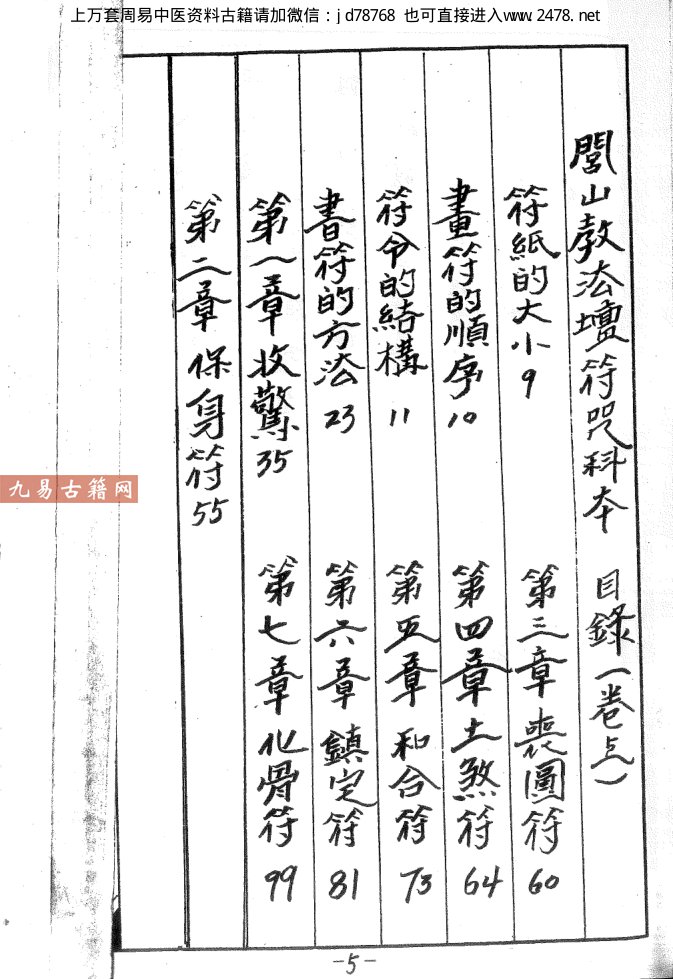 上万套周易中医资料古籍请加微信：jd78768 也可直接进入www.2478.net
閭山教法壇符咒科本 目錄(卷
符紙的大小9
畫符的順序10
符令的結構11
書符的方法23
第一章收驚35
第二章保身符55
第三章喪圖符60
第四章土煞符64
第五章和合符73
第六章鎮定符81
第七章化骨符99
九易古籍网
-5-